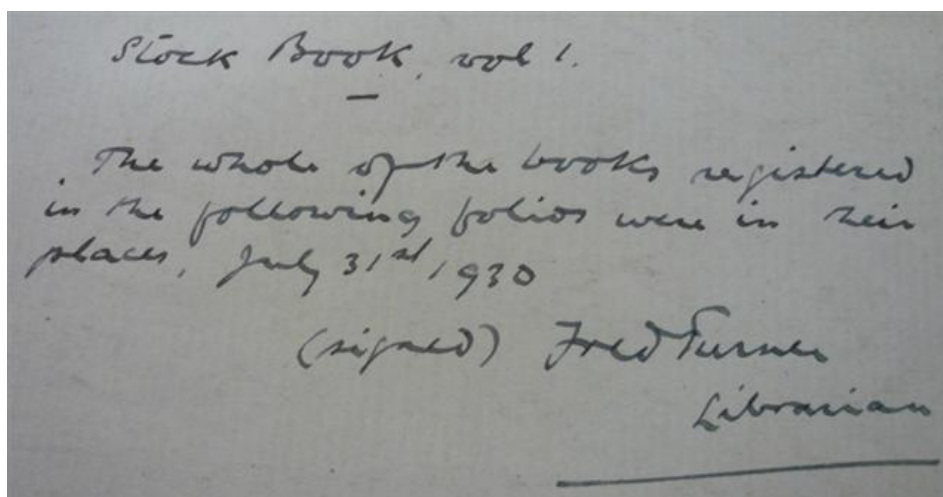 Stock Book, vol 1.
The whole of the books registered
in the following folios were in their
places, July 31st, 1930
(signed) Fred Turner
Librarian